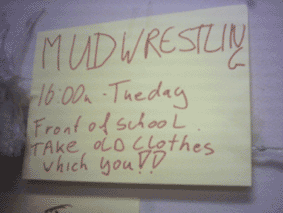 MUDWRESTLING
16:00h. Tueday
Front of school.
TAke old Clothes
which you!!